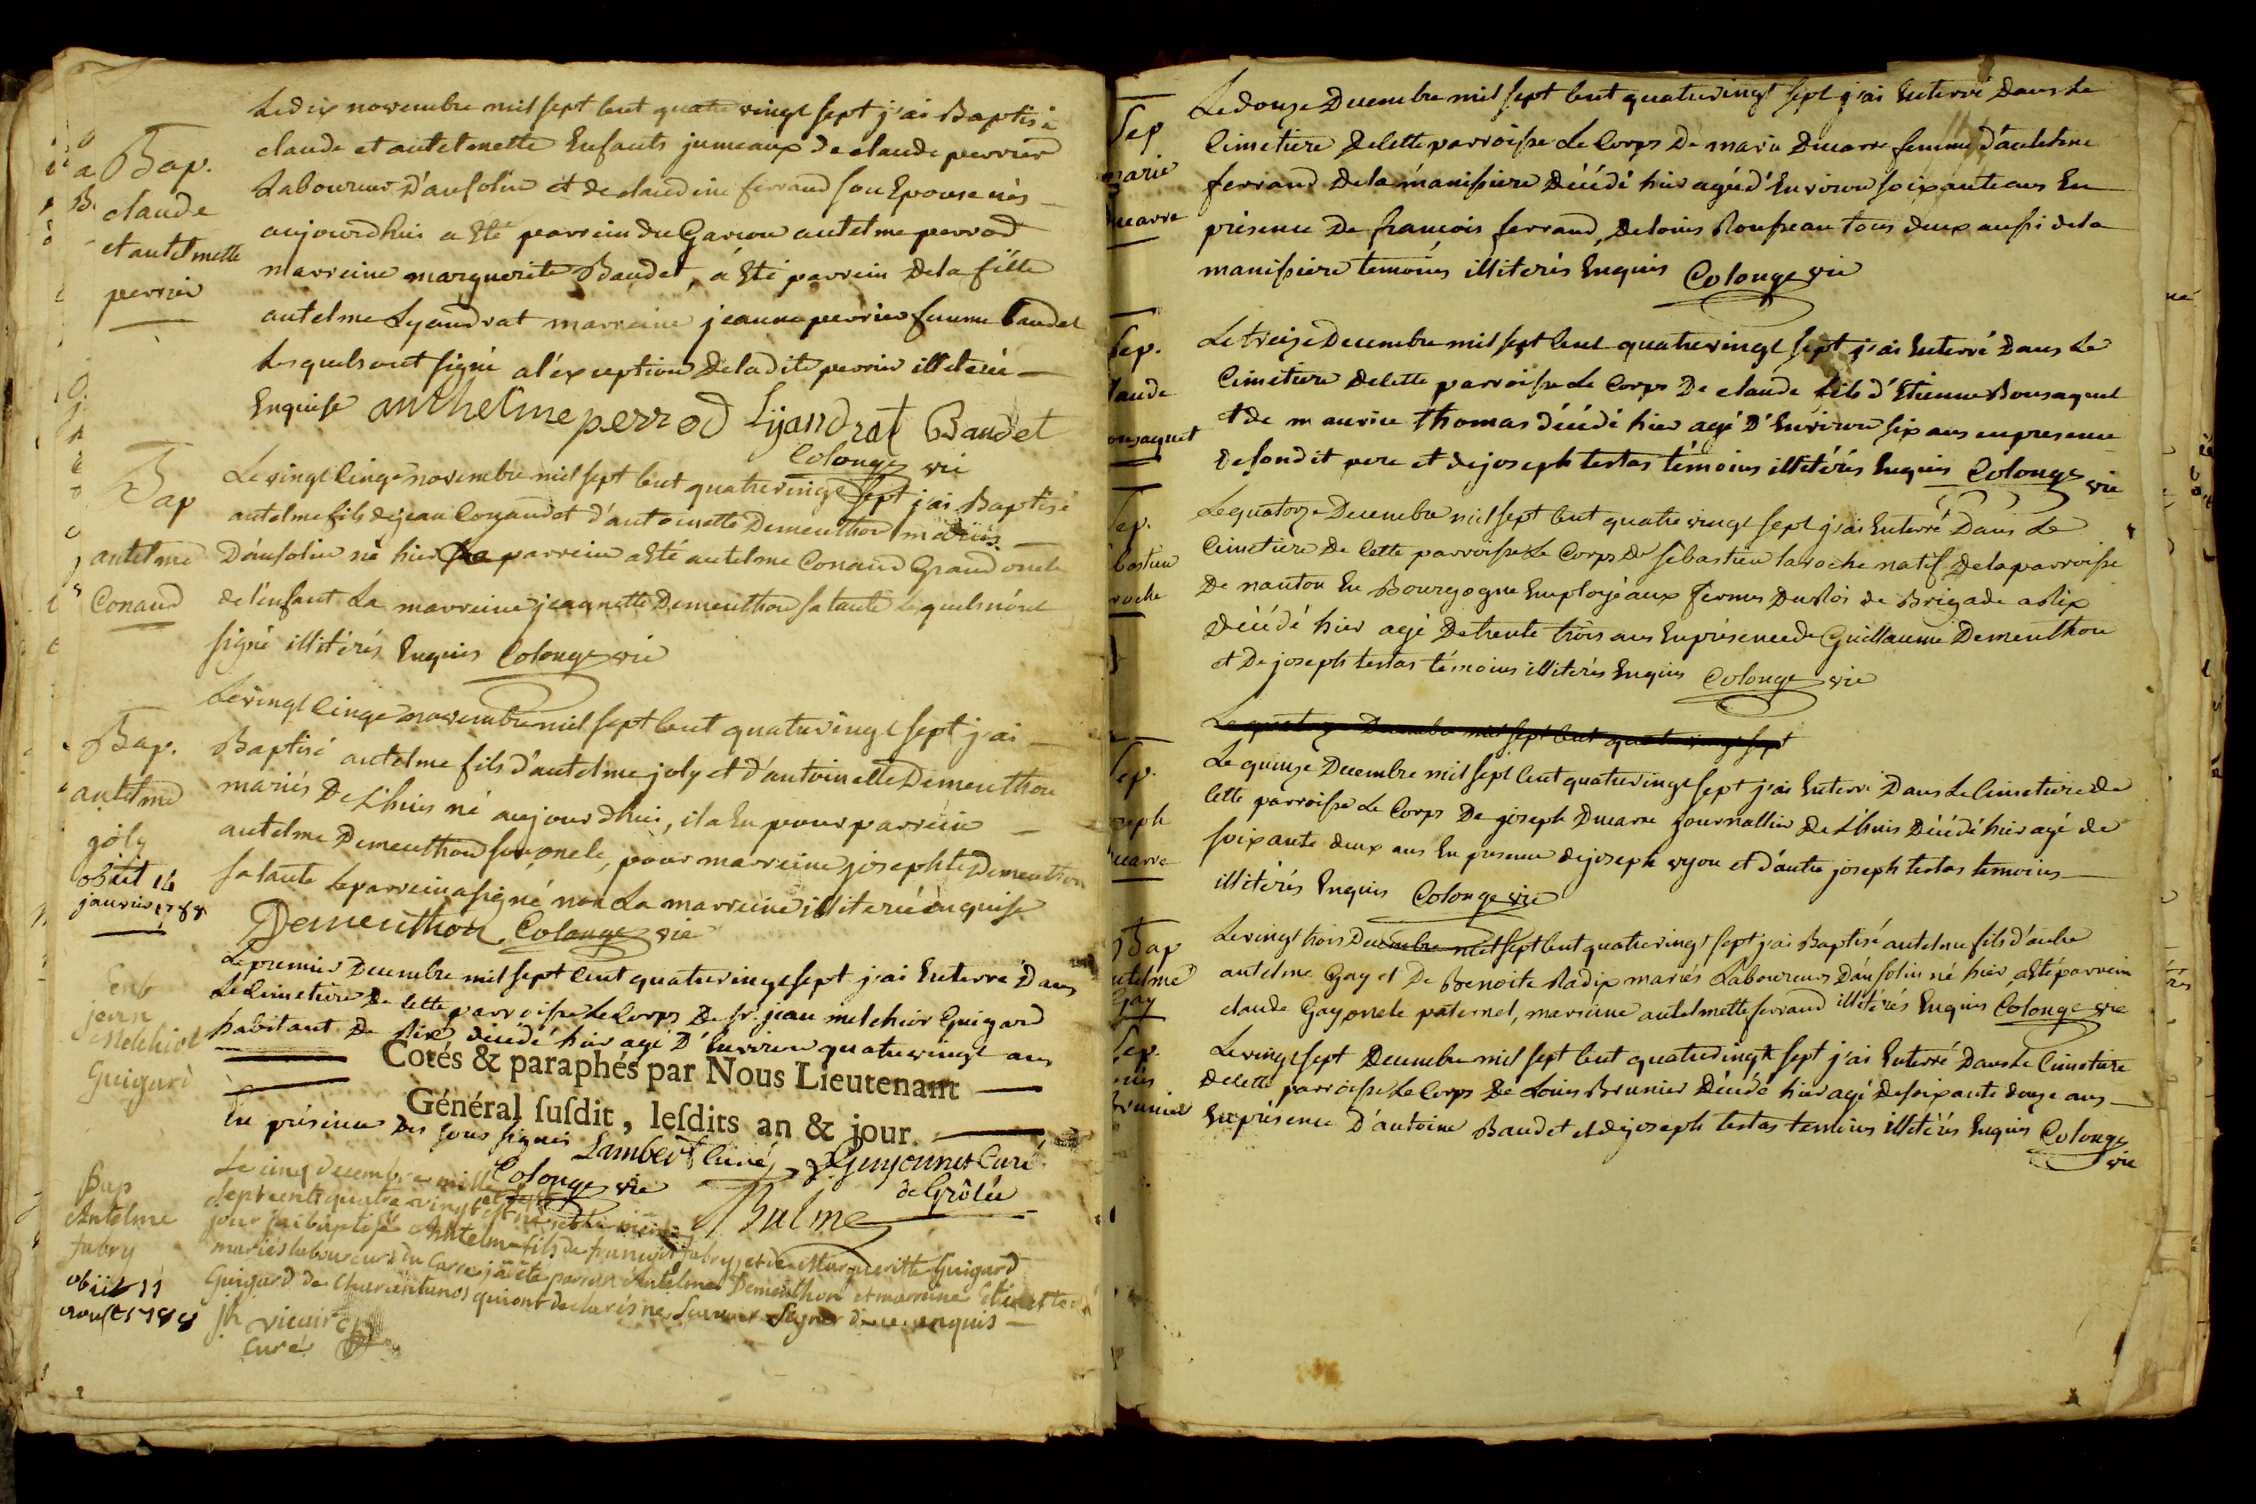 Bap.
claude
et antelmette
perrier
Le dix novembre mil sept cent quatre vingt sept j'ai Baptisé
claude et antelmette Enfants jumeaux de claude perrier
Laboureur d'ansolin et de claudine ferrand son Epouse nés
aujourdhui a Eté parrein du Garcon antelme perrod
marreine marguerite Baudet, a Eté parrein de la fille
antelme Lyandrat marreine jeanne perrier femme baudet
Lesquels ont signé a l'exception de la dite perrier illiterée
Enquise anthelme perrod Lyandrat Baudet
Colonge vic
Bap
antelme
Conand
Le vingt cinq novembre mil sept cent quatre vingt sept j'ai Baptisé
antelme fils de jean Conand et d'antoinette Demeuthon mariés
D'ansolin né hier parrein a Eté antelme Conand Grand oncle
de l'enfant La marreine jeannette Demeuthon sa tante Lesquels n'ont
signé illitérés Enquis Colonge vic
Bap.
antelme
joly
obiit 14
janvier 1788
Le vingt cinq novembre mil sept cent quatre vingt sept j'ai
Baptisé antelme fils d'antelme joly et d'antoinette Demeuthon
mariés De Lhuis né aujourdhui, il a Eu pour parrein
antelme Demeuthon son oncle, pour marreine josephte Demeuthon
sa tante Le parrein a signé non La marreine illiterée enquise
Demeuthon Colonge vic
Sep
jean
Melchior
Guigard
Le premier Decembre mil sept cent quatre vingt sept j'ai Enterré Dans
Le Cimetiere De cette parroisse Le Corps De sr. jean melchior Guigard
habitant De Rix décédé hier agé D'Environ quatre vingt ans
Cotés & paraphés par Nous Lieutenant
Général susdit, lesdits an & jour.
En présence Des sous signés Lambert Curé Guyonnet Curé
Colonge vic de Grôlée
Balme
Bap
Antelme
fabry
obiit 11
aoust 1788
Le cinq decembre mille
sept cents quatre vingt et sept
jour j'ai baptisé Antelme fils de françois fabry, et de Margueritte Guigard
mariés laboureurs du Carre, jà été parrein Antelme Demeuthon et marreine
Guigard de qui ont declarés ne scavoir Signer de ce enquis
vicaire
Curé
Sep
marie
Ducarre
Le douze Decembre mil sept cent quatre vingt sept j'ai Enterré Dans Le
Cimetiere De cette parroisse Le Corps De marie Ducarre femme d'antelme
ferrand De la manissiere Décédé hier agée d'Environ soixante ans En
présence De françois ferrand, de louis Rousseau tous deux aussi de la
manissiere temoins illiterés Enquis Colonge vic
Sep.
Claude
Bonsaquet
Le treize Decembre mil sept cent quatre vingt sept j'ai Enterré Dans Le
Cimetiere De cette parroisse Le Corps De claude fils d'Etienne Bonsaquet
et de maurice thomas décédé hier agé D'Environ six ans en presence
de son dit pere et de joseph testas témoins illitérés Enquis Colonge vic
Sep.
Sébastien
Laroche
Le quatorze Decembre mil sept cent quatre vingt sept j'ai Enterré Dans Le
Cimetiere De cette parroisse Le Corps De sébastien laroche natif De la parroisse
De nanton En Bourgogne Employé aux fermes Du Roi de Brigade a Rix
Décédé hier agé De trente trois ans En présence de Guillaume Demeuthon
et De joseph testas témoins illiterés Enquis Colonge vic
Le quatorze Decembre mil sept cent quatre vingt sept
Sep.
joseph
Ducarre
Le quinze Decembre mil sept cent quatre vingt sept j'ai Enterré Dans Le Cimetiere De
cette parroisse Le Corps De joseph Ducarre journallier De Lhuis Décédé hier agé de
soixante deux ans En presence de joseph vyon et d'autre joseph testas temoins
illitérés Enquis Colonge vic
Bap
antelme
Gay
Le vingt trois Decembre mil sept cent quatre vingt sept j'ai Baptisé antelme fils d'autre
antelme Gay et De Benoite Radix mariés Laboureurs D'ansolin né hier, a Eté parrein
claude Gay oncle paternel, marreine antelmette ferrand illitérés Enquis Colonge vic
Sep.
Louis
Brunier
Le vingt sept Decembre mil sept cent quatre vingt sept j'ai Enterré Dans Le Cimetiere
De cette parroisse Le Corps De Louis Brunier Décédé hier agé De soixante douze ans
En présence D'antoine Baudet et de joseph testas temoins illitérés Enquis Colonge
vic